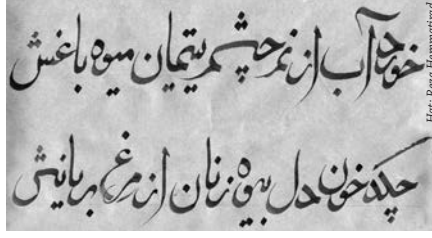 خورد آب از نم چشم یتیمان میوه باغش
چکد خون دل بیوه زنان از مرغ بریانش
Hat: Reza Hemmatirad